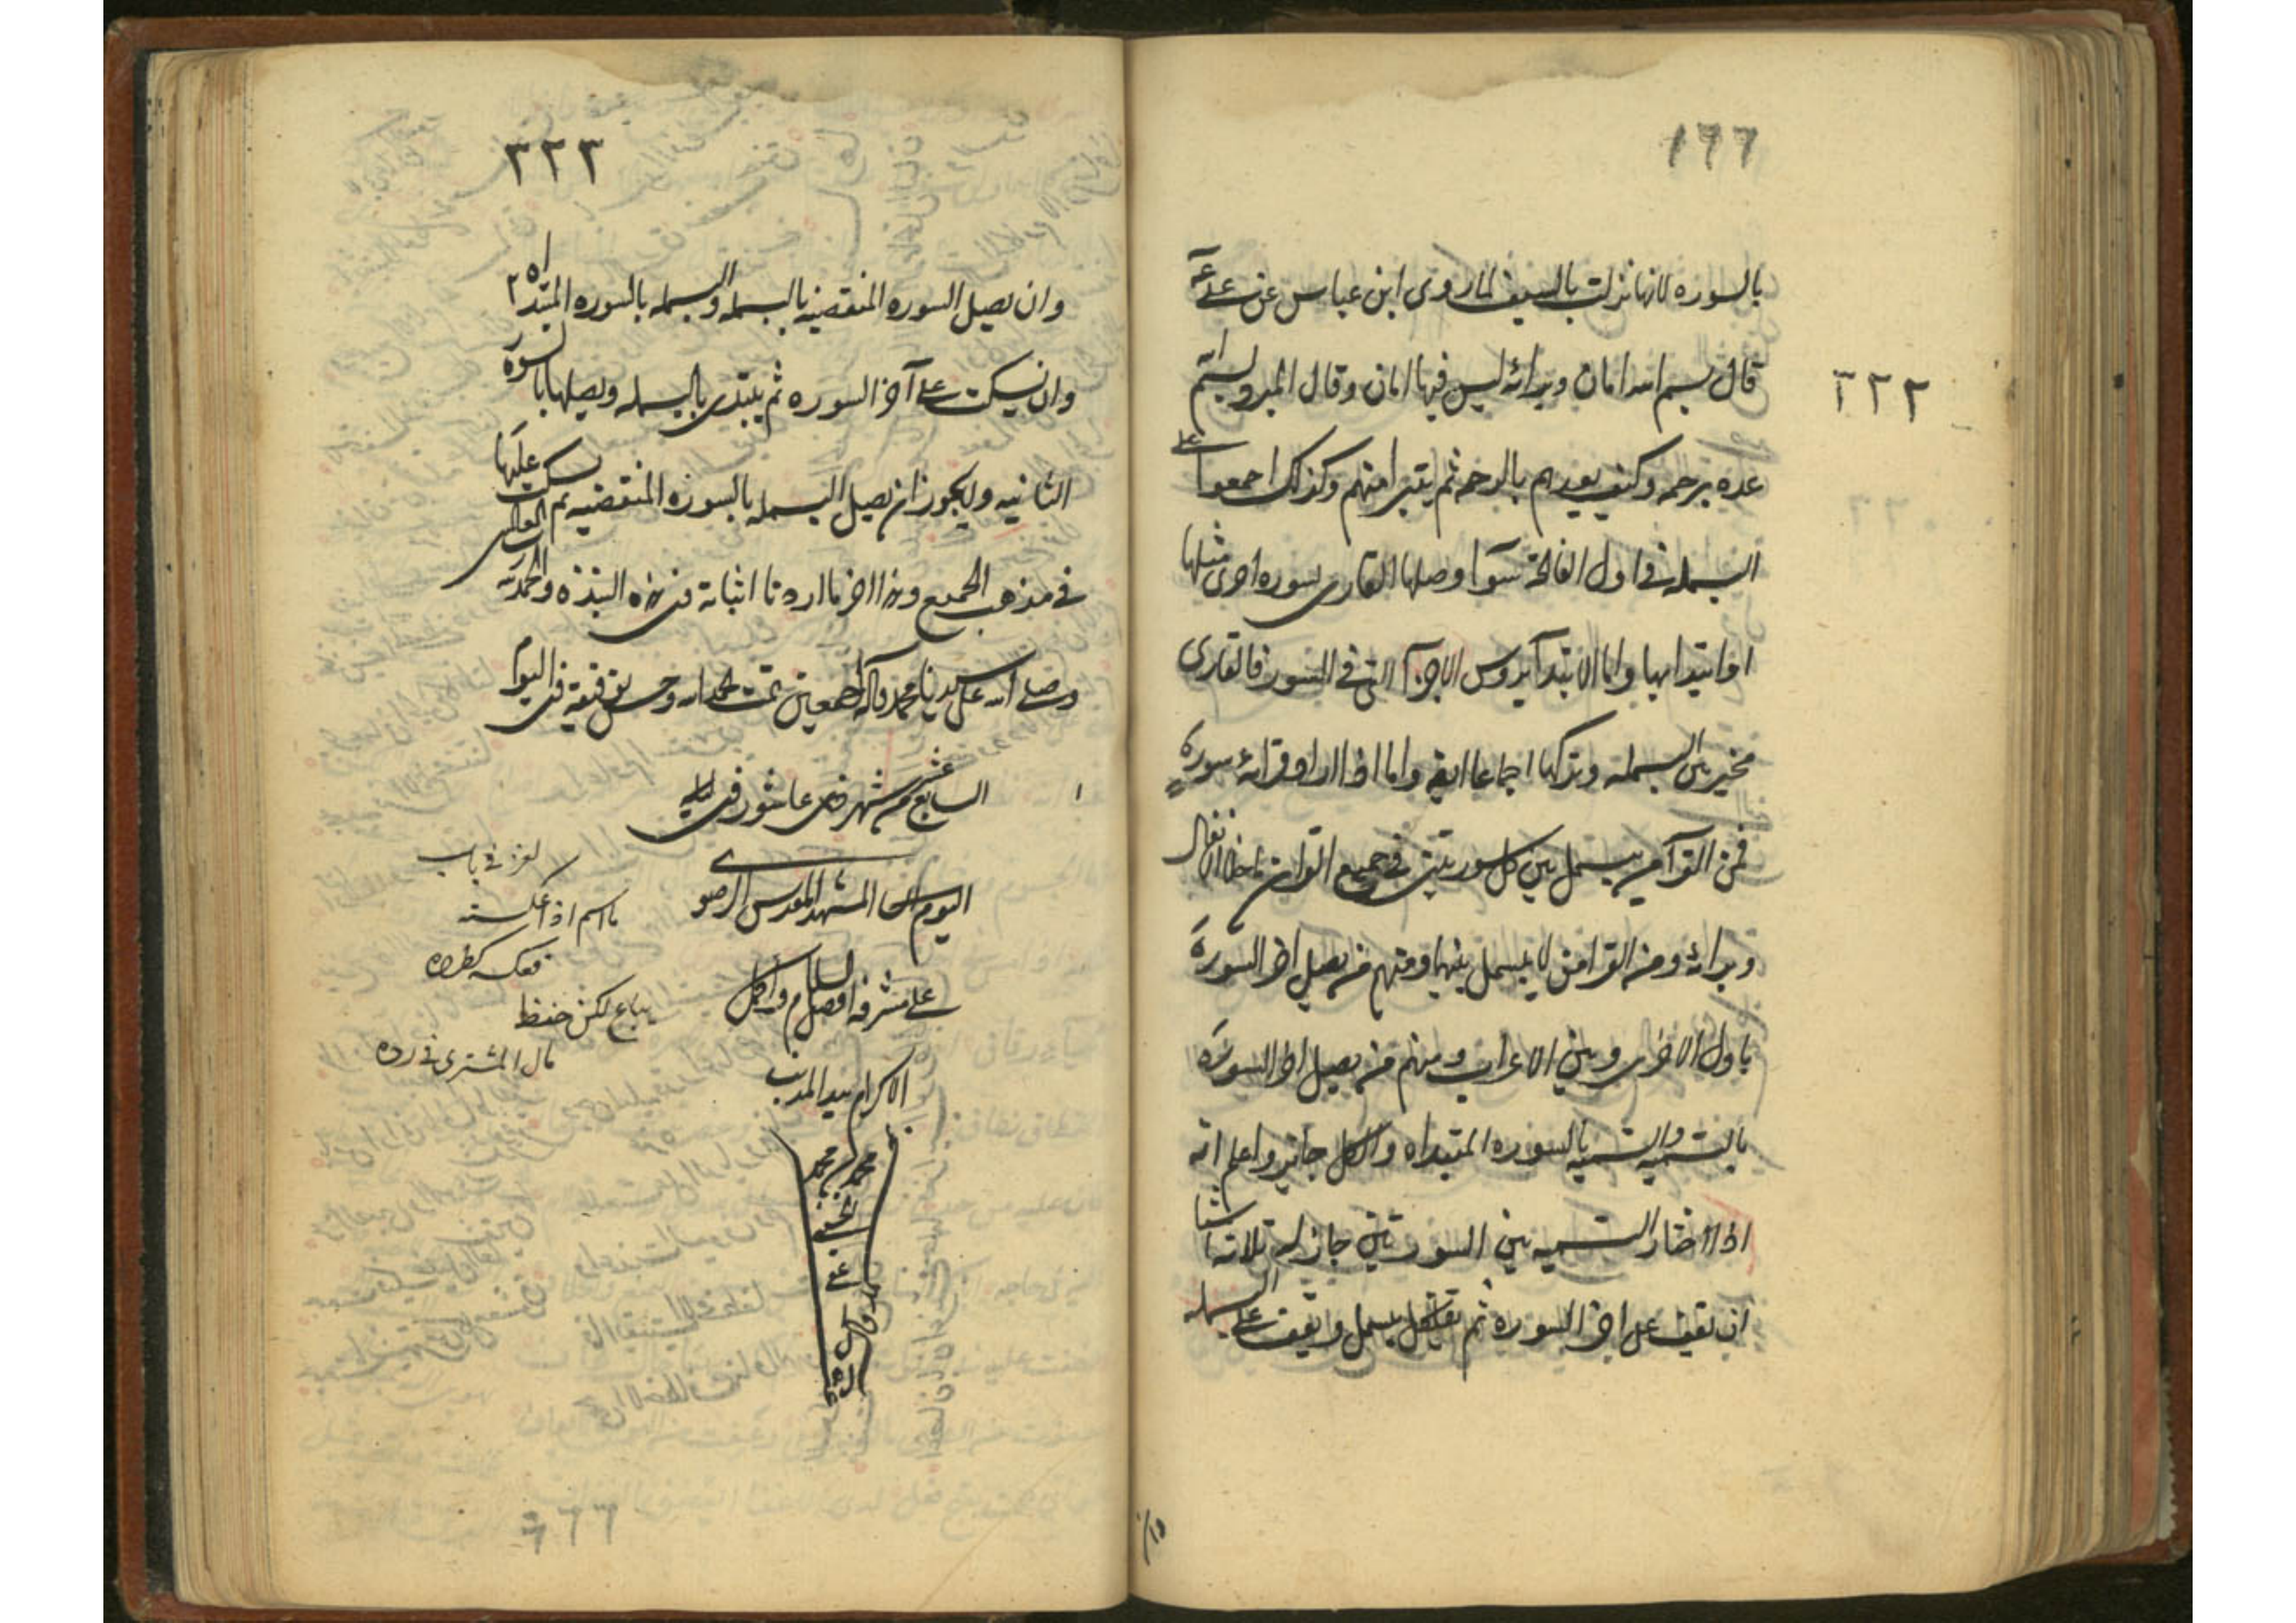 ١٦٦
٣٢٢
بالسوره لانها نزلت بالسيف لما روى ابن عباس عن على ع
قال بسم الله امان وبرائه ليس فيها امان وقال المبرد ليستم
عده برحمه وكيف يعدهم بالرحمه ثم يتبرا منهم وكذلك اجمعوا على
البسمله فى اول الفاتحة سوآ وصلها القارى بسوره اخرى مثلها
او ابتدا بها واما الابتدآ بروس الاجزآ التى فى السور فالقارى
مخير بين البسمله وتركها اجماعا ايضا واما اذا اراد قرائة سورة
فمن القرآ من يبسمل بين كل سورتين فى جميع القران ما خلا الانفال
وبرائه ومن القرا من لا يبسمل بينهما ومنهم من يصل اخر السورة
باول الاخرى وبين الاعراب ومنهم من يصل اخر السورة
بالتسميه والتسميه بالسوره المبتداه والكل جايز واعلم انه
اذا اختار التسميه بين السورتين جاز له ثلاثه اشيا
ان يقف على اخر السوره ثم يبسمل ويقف على البسمله
٣٢٣
وان يصل السوره المنقضيه بالبسمله والبسمله بالسوره المبتداه
وان يسكت على آخر السوره ثم يبتدى بالبسمله ويصلها بالسوره
الثانيه ولا يجوز ان يصل البسمله بالسوره المنقضيه ثم يسكت عليها
فى مذهب الجميع وهذا اخر ما اردنا اثباته فى هذه النبذه والحمد لله رب العالمين
وصلى الله على سيدنا محمد وآله اجمعين تمت بحمد الله وحسن توفيقه فى اليوم
السابع عشر من شهر عاشور فى
اليوم المشهد المقدس الرضوى
على مشرفه افضل السلام واكمل
الاكرام بيد المذنب
محمد بن محمد
لغز فى باب
ما اسم اذا عكسته
فعكسه كطرده
يباع لكن حفظ
مال المشترى فى رده